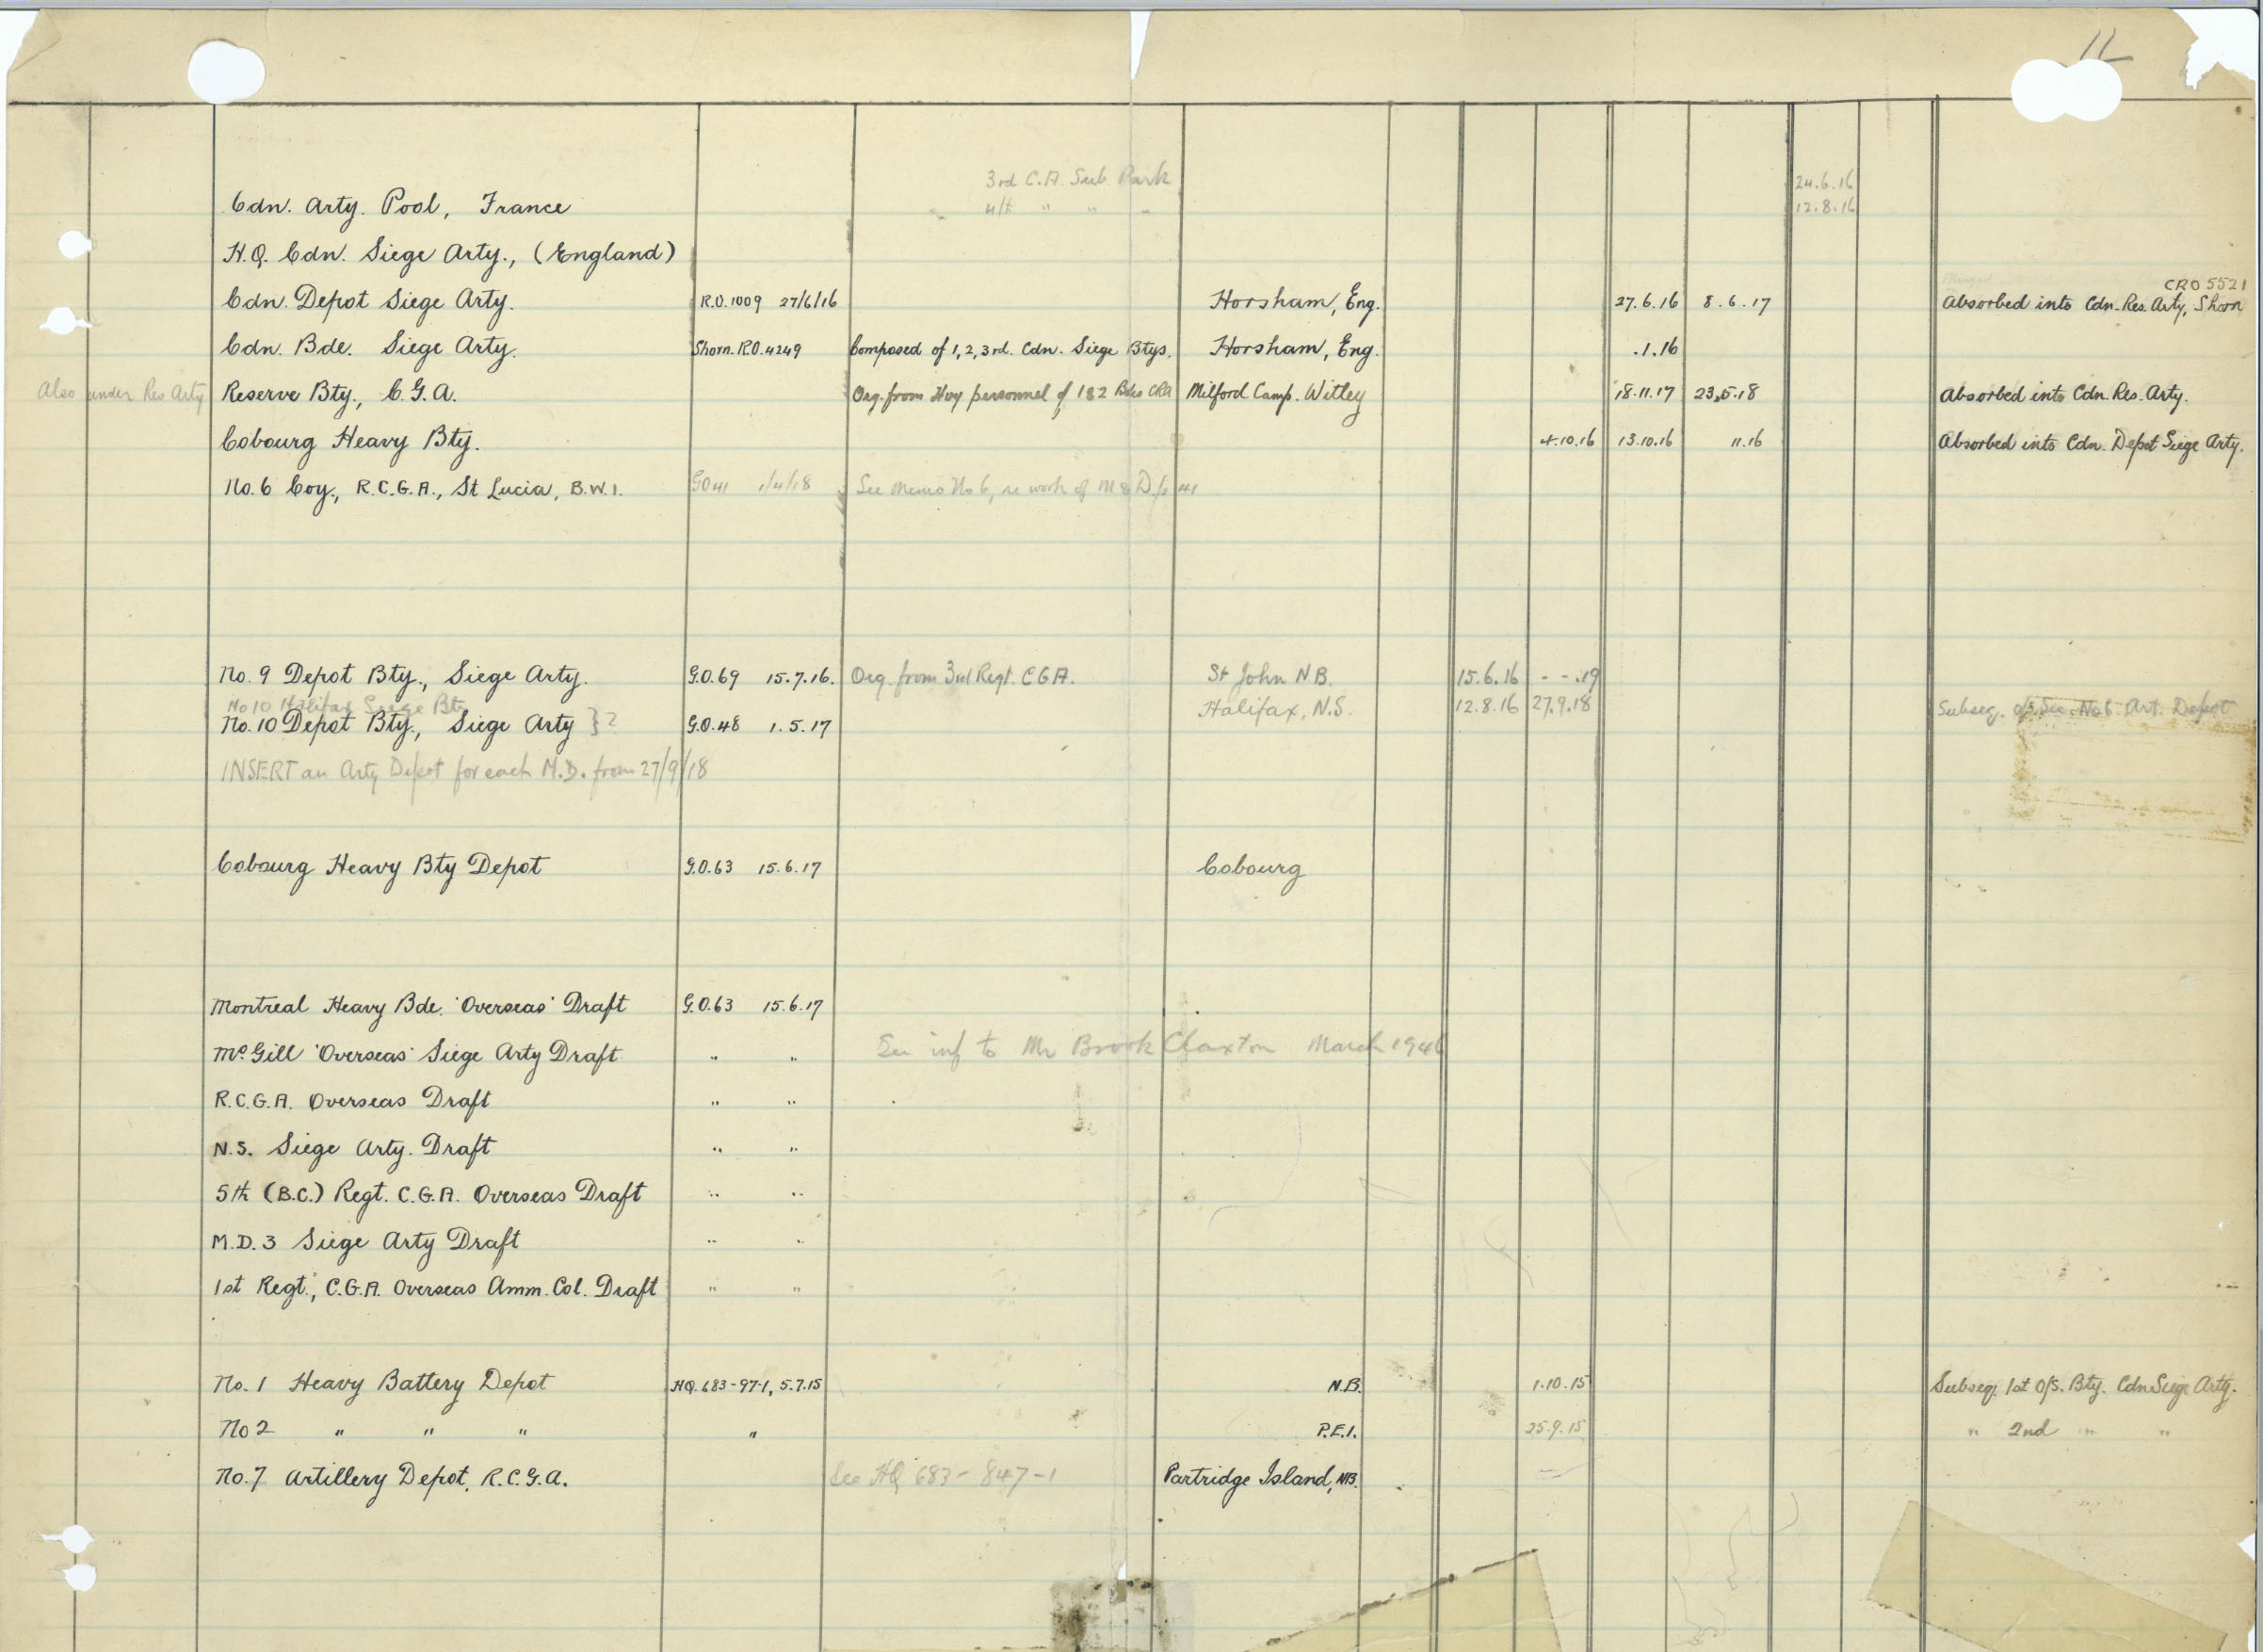 11
3rd C.A. Sub Park 24.6.16
Cdn. Arty. Pool, France 4th " " " 12.8.16
H.Q. Cdn. Siege Arty., (England)
CRO 5521
Cdn. Depot Siege Arty. R.O. 1009 27/6/16 Horsham, Eng. 27.6.16 8.6.17 Absorbed into Cdn. Res. Arty, Shorn
Cdn. Bde. Siege Arty. Shorn. R.O. 4249 Composed of 1, 2, 3rd. Cdn. Siege Btys. Horsham, Eng. .1.16
Also under Res Arty Reserve Bty., C.G.A. Org. from Hvy personnel of 1 & 2 Bdes CRA Milford Camp. Witley 18.11.17 23.5.18 Absorbed into Cdn. Res. Arty.
Cobourg Heavy Bty. 4.10.16 13.10.16 11.16 Absorbed into Cdn. Depot Siege Arty.
No. 6 Coy., R.C.G.A., St Lucia, B.W.I. GO 41 1/4/18 See Memo No 6, re work of M & D p 41
No. 9 Depot Bty., Siege Arty. G.O. 69 15.7.16. Org. from 3rd Regt. CGA. St John NB. 15.6.16 - - .19
No 10 Halifax Siege Bty Halifax, N.S. 12.8.16 27.9.18 Subseq. Art. Depot
No. 10 Depot Bty., Siege Arty } 2 G.O. 48 1.5.17
INSERT an Arty Depot for each M.D. from 27/9/18
Cobourg Heavy Bty Depot G.O. 63 15.6.17 Cobourg
Montreal Heavy Bde. 'Overseas' Draft G.O. 63 15.6.17
McGill 'Overseas' Siege Arty Draft " " See inf to Mr Brook Claxton March 1946
R.C.G.A. Overseas Draft " "
N.S. Siege Arty. Draft " "
5th (B.C.) Regt. C.G.A. Overseas Draft " "
M.D. 3 Siege Arty Draft " "
1st Regt., C.G.A. Overseas Amm. Col. Draft " "
No. 1 Heavy Battery Depot HQ. 683-97-1, 5.7.15 N.B. 1.10.15 Subseq. 1st O/S. Bty. Cdn Siege Arty.
No 2 " " " " P.E.I. 25.9.15 " 2nd " "
No. 7 Artillery Depot, R.C.G.A. See HQ 683-847-1 Partridge Island, NB.